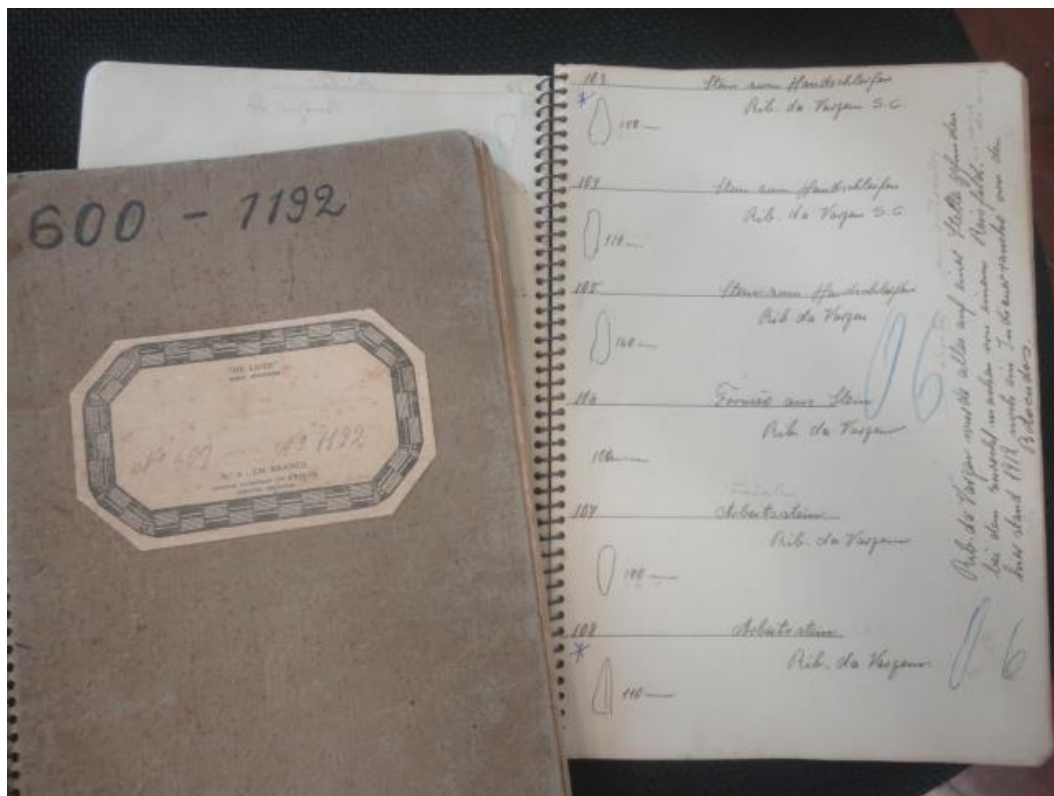 600 - 1192
"DE LUXE"
No 607 Nº 1192
Nº 6 - EM BRANCO
103
Stein zum Handschleifen
*
Rib. da Vargem S.C.
110
Stein zum Handschleifen
Rib. da Vargem S.C.
110
105
Stein zum Handschleifen
Rib. da Vargem
140
106
aus Stein
Rib. da Vargem
06
107
Arbeitsstein
Rib. da Vargem
100
108
Arbeitsstein
*
Rib. da Vargem
110
Rib. da Vargem wurde alles auf einer Stelle gefunden
bei dem machen von einem Reisfeld.
hier stand 1912 noch ein Indianerrancho von den
Botocudos.
06